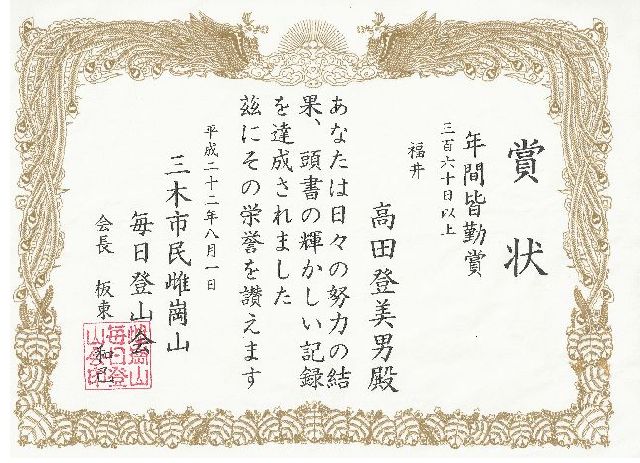 賞状
年間皆勤賞
三百六十日以上
福井
高田登美男殿
あなたは日々の努力の結
果、頭書の輝かしい記録
を達成されました
茲にその栄誉を讃えます
平成二十二年八月一日
三木市民雌岡山
毎日登山会
会長 板東